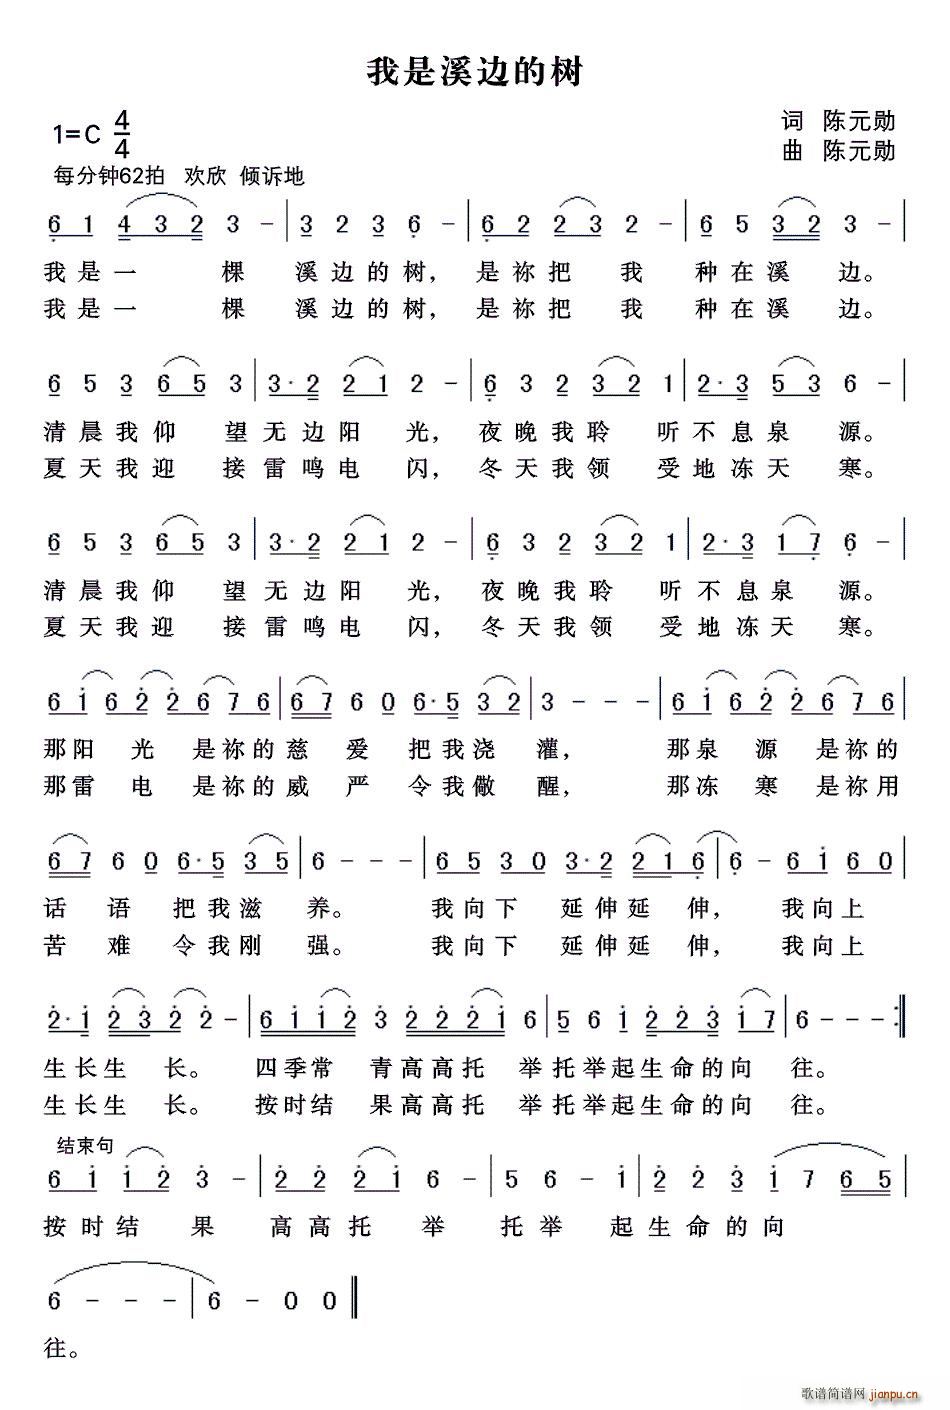 我是溪边的树
1=C 4/4
词 陈元勋
曲 陈元勋
每分钟62拍 欢欣 倾诉地
6 1 4 3 2 3 - | 3 2 3 6 - | 6 2 2 3 2 - | 6 5 3 2 3 - |
我是一 棵 溪边的树，是祢把 我 种在溪 边。
我是一 棵 溪边的树，是祢把 我 种在溪 边。
6 5 3 6 5 3 | 3· 2 2 1 2 - | 6 3 2 3 2 1 | 2· 3 5 3 6 - |
清晨我仰 望无边阳 光，夜晚我聆 听不息泉 源。
夏天我迎 接雷鸣电 闪，冬天我领 受地冻天 寒。
6 5 3 6 5 3 | 3· 2 2 1 2 - | 6 3 2 3 2 1 | 2· 3 1 7 6 - |
清晨我仰 望无边阳 光，夜晚我聆 听不息泉 源。
夏天我迎 接雷鸣电 闪，冬天我领 受地冻天 寒。
6 1 6 2 2 6 7 6 | 6 7 6 0 6· 5 3 2 | 3 - - - | 6 1 6 2 2 6 7 6 |
那阳 光 是祢的慈 爱 把我浇 灌， 那泉 源 是祢的
那雷 电 是祢的威 严 令我儆 醒， 那冻 寒 是祢用
6 7 6 0 6· 5 3 5 | 6 - - - | 6 5 3 0 3· 2 2 1 6 | 6 - 6 1 6 0
话 语 把我滋 养。 我向下 延伸延 伸， 我向上
苦 难 令我刚 强。 我向下 延伸延 伸， 我向上
2· 1 2 3 2 2 - | 6 1 1 2 3 2 2 2 1 6 | 5 6 1 2 2 3 1 7 | 6 - - - :||
生长生 长。 四季常 青高高托 举托举起生命的向 往。
生长生 长。 按时结 果高高托 举托举起生命的向 往。
结束句
6 1 1 2 3 - | 2 2 2 1 6 - | 5 6 - 1 | 2 2 3 1 7 6 5 |
按时结 果 高高托 举 托举 起生命的向
6 - - - | 6 - 0 0 ||
往。
歌谱简谱网 jianpu.cn